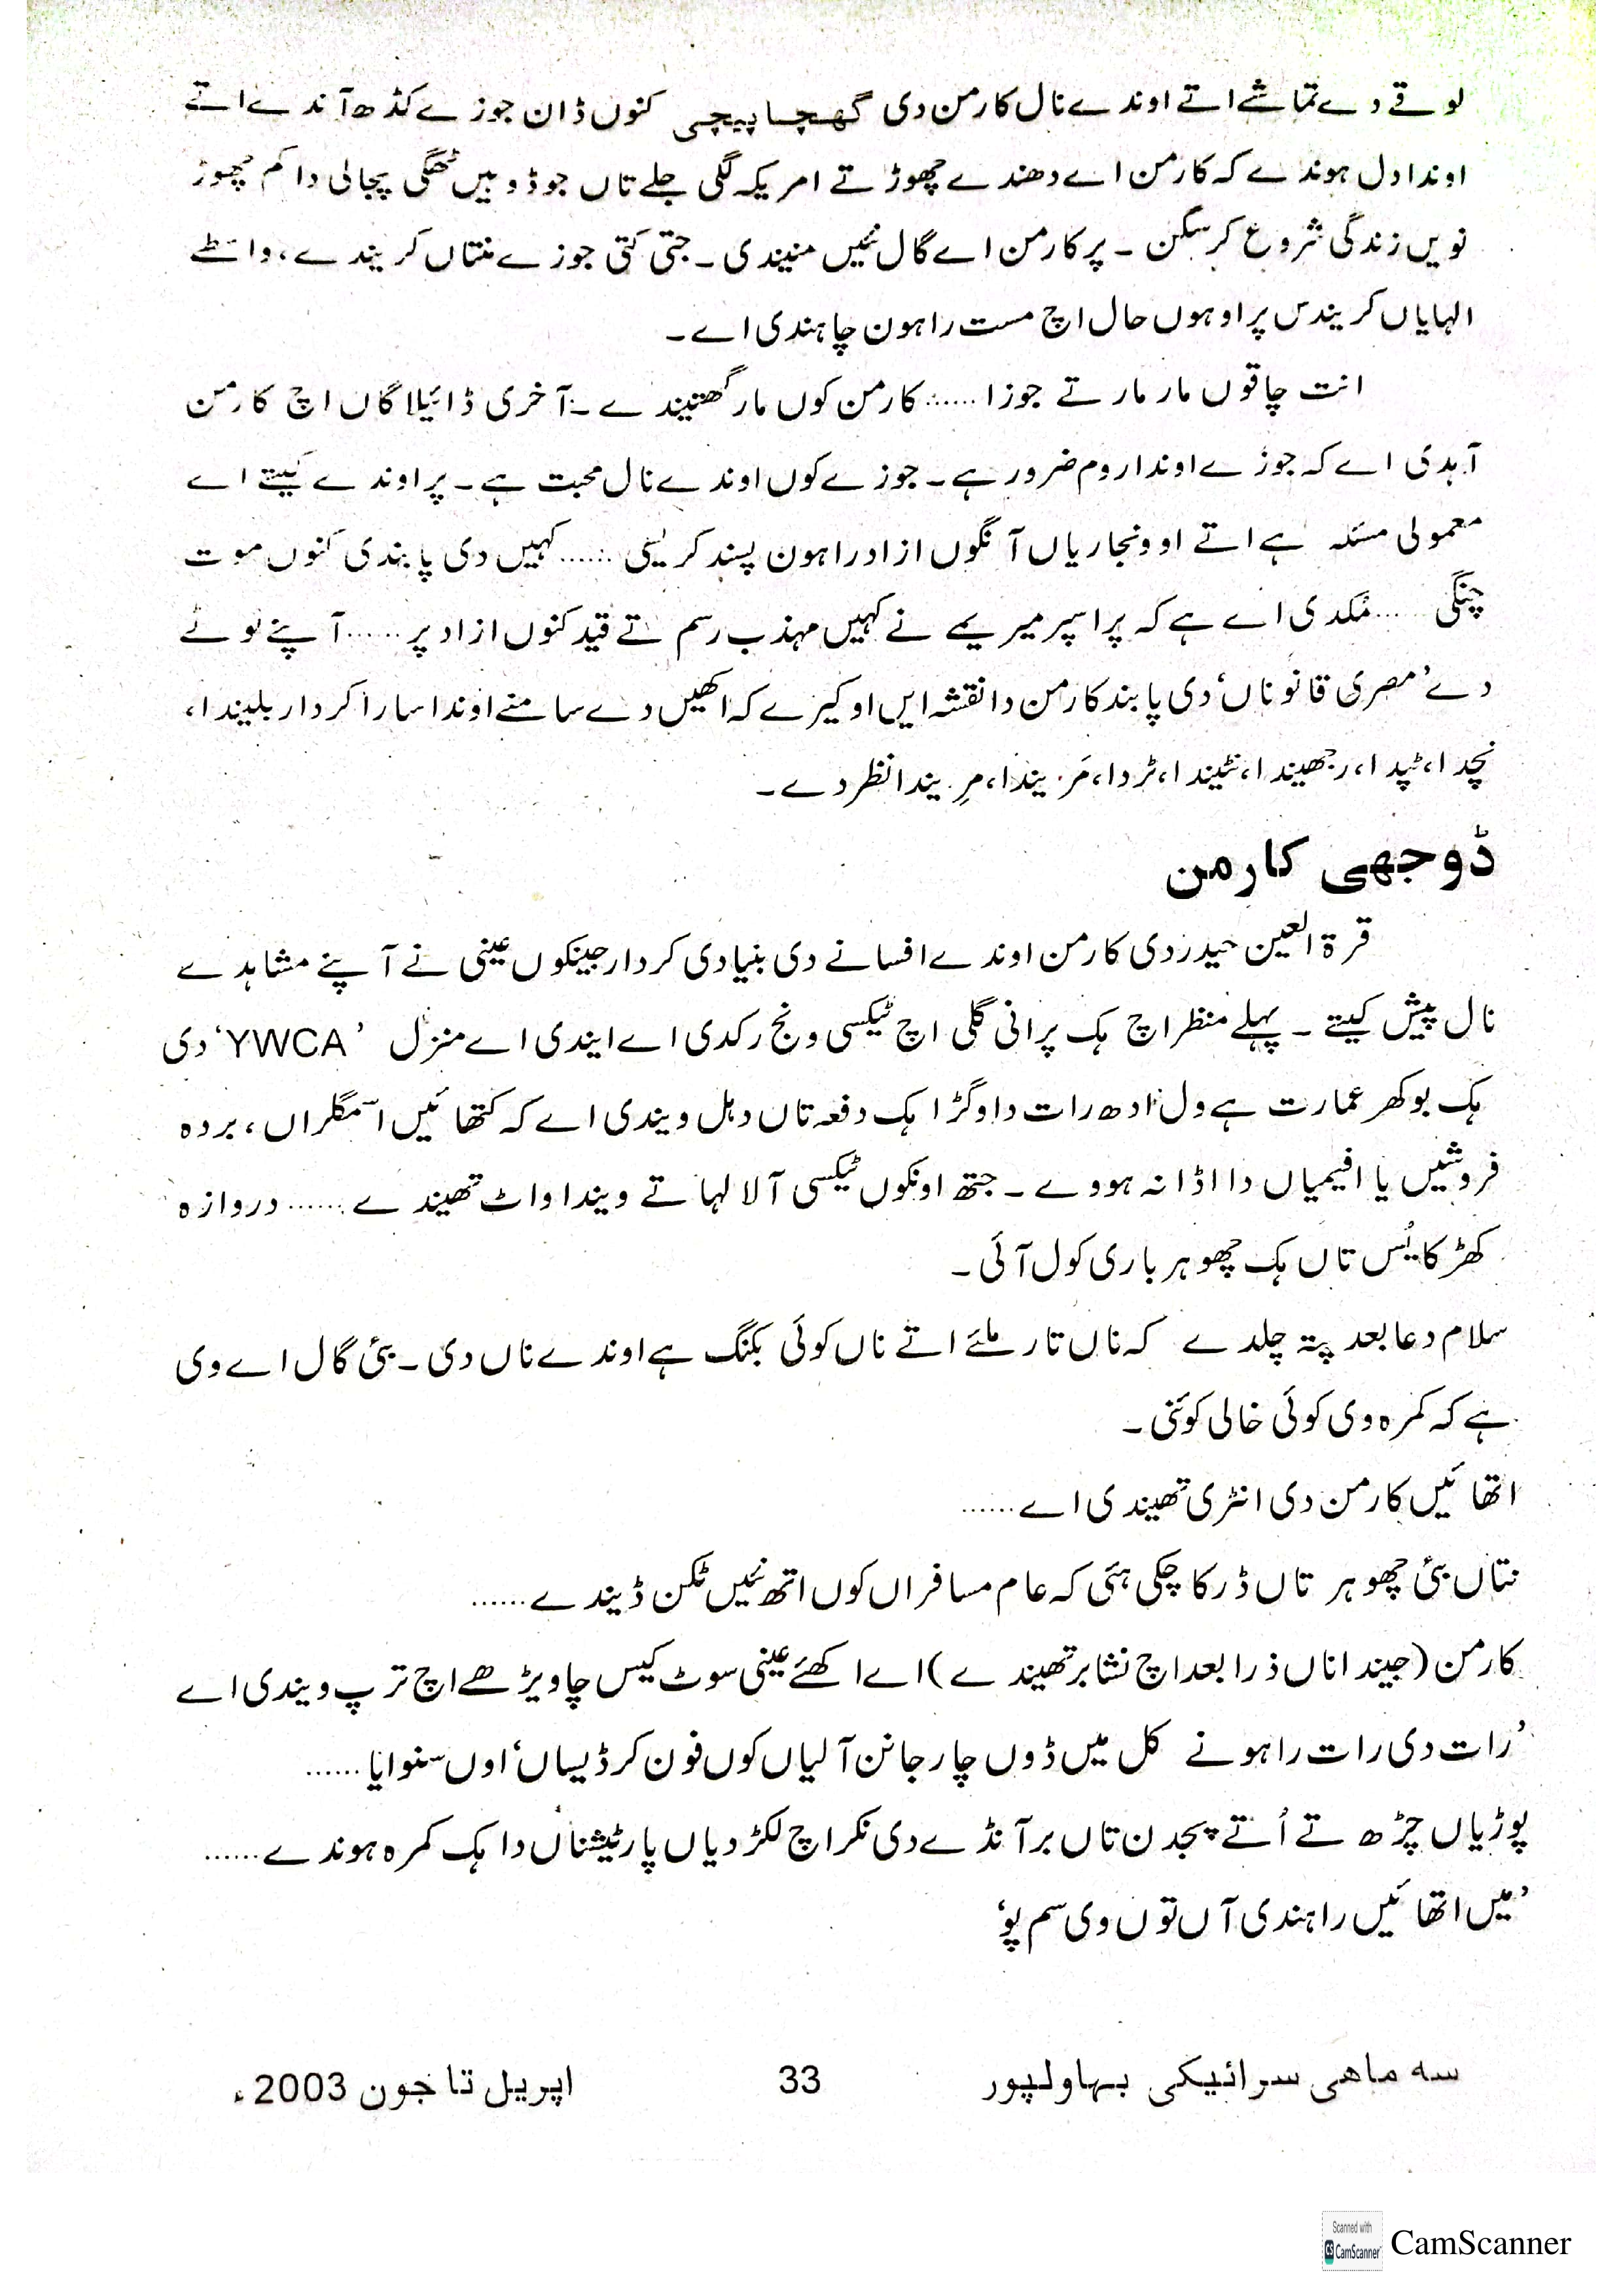 لوقے دے تماشے اتے اوندے نال کارمن دی گھچا پیچی کنوں ڈان جوزے کڈھ آندے اتے
اوندا دل ہوندے کہ کارمن اے دھندے چھوڑ تے امریکہ لگی جلے تاں جو ڈوہیں ٹھگی پچالی دا کم چھوڑ
نویں زندگی شروع کر سکن ۔ پر کارمن اے گال نئیں منیندی ۔ جتی کتی جوزے منتاں کریندے، واسطے
الہایاں کریندس پر او ہوں حال اچ مست راہون چاہندی اے ۔
انت چاقوں مار مار تے جوزا ...... کارمن کوں مار گھتیندے ۔ آخری ڈائیلاگاں اچ کارمن
آہدی اے کہ جوزے اوندا روم ضرور ہے ۔ جوزے کوں اوندے نال محبت ہے ۔ پر اوندے کیتے اے
معمولی مسئلہ ہے اتے او ونجاریاں آنگوں ازاد راہون پسند کریسی ...... کہیں دی پابندی کنوں موت
چنگی ...... مُکدی اے ہے کہ پراسپر میریمے نے کہیں مہذب رسم تے قید کنوں ازاد پر ...... آپنے ٹولے
دے ’مصری قانوناں‘ دی پابند کارمن دا نقشہ ایں اوکیرے کہ اکھیں دے سامنے اوندا سارا کردار بلیندا،
نچدا، ٹپدا، رجھیندا، نٹیندا، ٹردا، مَریندا، مِریندا نظردے ۔
ڈوجھی کارمن
قرۃ العین حیدر دی کارمن اوندے افسانے دی بنیادی کردار جینکوں عینی نے آپنے مشاہدے
نال پیش کیتے ۔ پہلے منظر اچ ہک پرانی گلی اچ ٹیکسی ونج رکدی اے ایندی اے منزل ’YWCA‘ دی
ہک بوکھر عمارت ہے ول ادھ رات دا وگڑا ہک دفعہ تاں دہل ویندی اے کہ کتھائیں اسمگلراں، بردہ
فروشیں یا افیمیاں دا اڈا نہ ہووے ۔ جتھ اونکوں ٹیکسی آلا لہا تے ویندا واٹ تھیندے ...... دروازہ
کھڑکایُس تاں ہک چھوہر باری کول آئی ۔
سلام دعا بعد پتہ چلدے کہ ناں تار ملئے اتے ناں کوئی بکنگ ہے اوندے ناں دی ۔ بئی گال اے وی
ہے کہ کمرہ وی کوئی خالی کوئنی ۔
اتھائیں کارمن دی انٹری تھیندی اے ......
نتاں بئی چھوہر تاں ڈرکا چکی ہئی کہ عام مسافراں کوں اتھ نئیں ٹکن ڈیندے ......
کارمن (جیندا ناں ذرا بعد اچ نشابر تھیندے) اے اکھئے عینی سوٹ کیس چا ویڑھے اچ ترپ ویندی اے
’رات دی رات راہونے کل میں ڈوں چار جانن آلیاں کوں فون کر ڈیساں‘ اوں سنوایا ......
پوڑیاں چڑھ تے اُتے پجدن تاں برآنڈے دی نکر اچ لکڑ دیاں پارٹیشناں دا ہک کمرہ ہوندے ......
’میں اتھائیں راہندی آں توں وی سم پو‘
سہ ماہی سرائیکی بہاولپور 33 اپریل تا جون 2003ء
Scanned with
CS CamScanner CamScanner